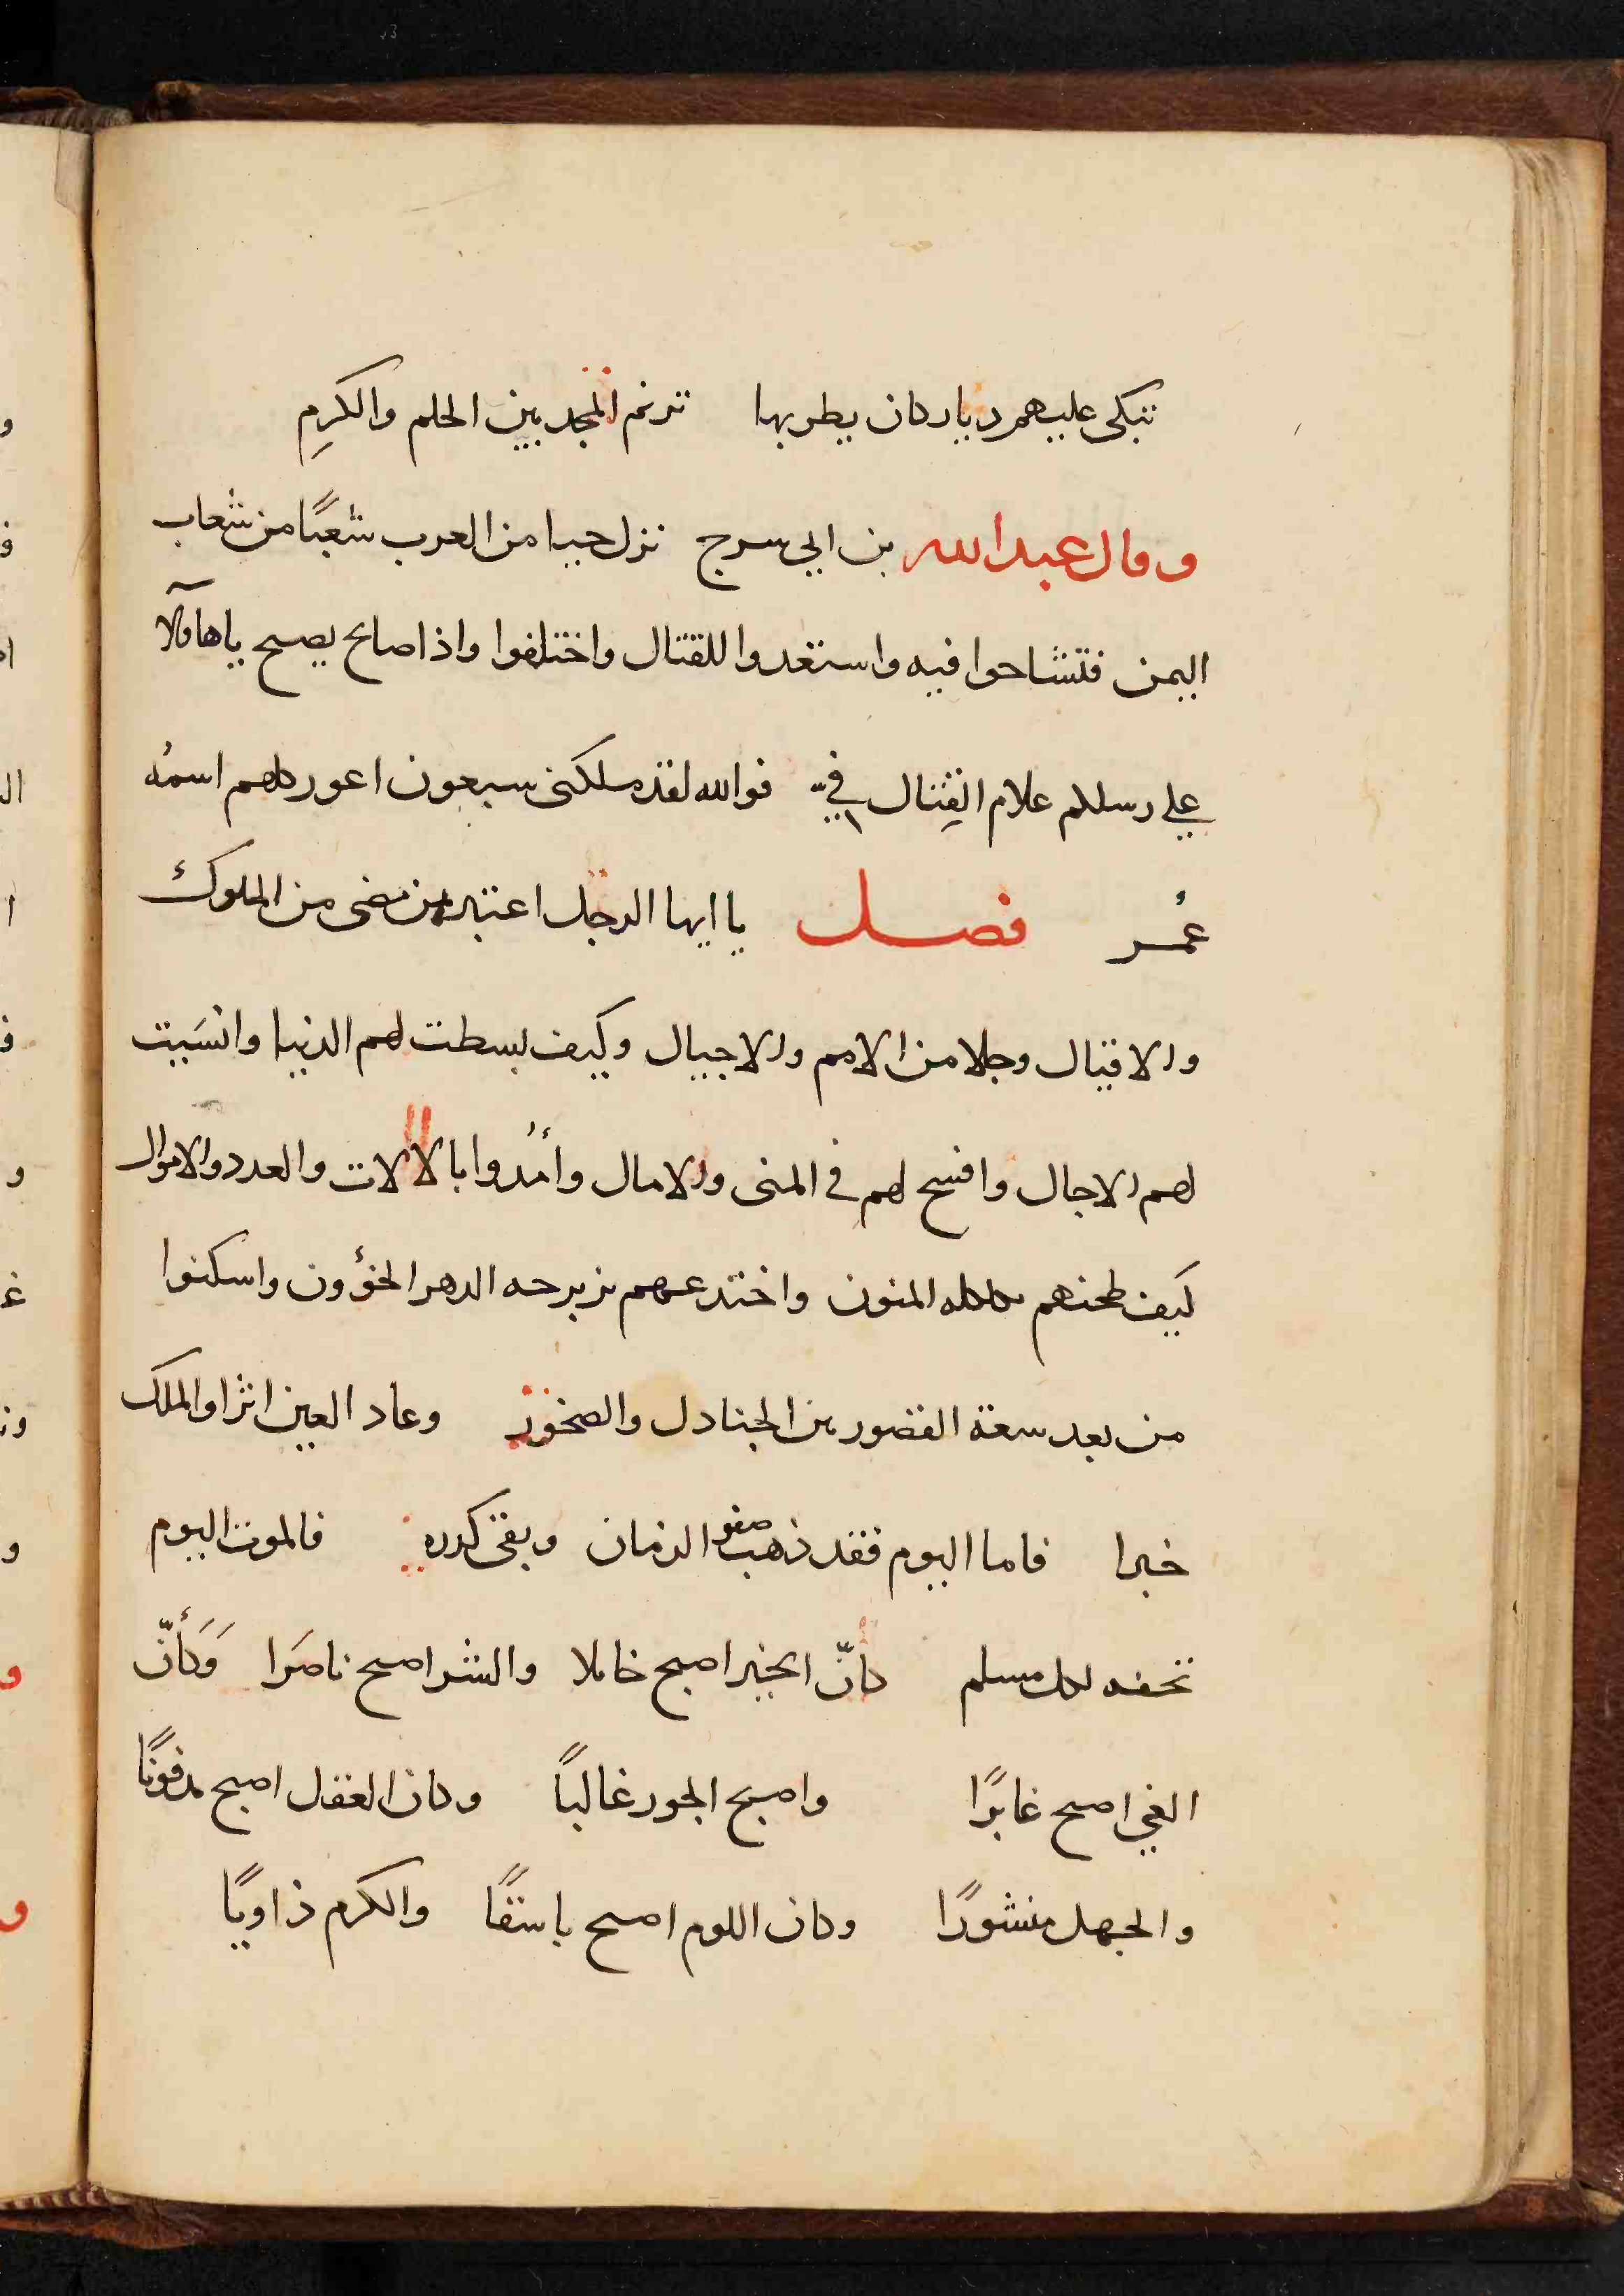 تبكى عليهم ديار كان يطربها ترنم المجد بين الحلم والكرم
وقال عبد الله بن ابي سرج نزل حيا من العرب شعبًا من شعاب
اليمن فتشاحوا فيه واستعدوا للقتال واختلفوا واذا صايح يصيح ياهاولآ
على رسلكم علام القِتال فيّ فوالله لقد ملكنى سبعون اعور كلهم اسمُه
عمُر فصل يا ايها الرجل اعتبر بمن مضى من الملوك
والاقيال وخلا من الامم والاجيال وكيف بسطت لهم الدنيا وانسَيت
لهم الاجال وافسح لهم فى المنى والامال وأمُدوا بالالات والعدد والاموال
كيف طحنهم بكلكله المنون واختدعهم بزبرجه الدهر الخؤون واسكنوا
من بعد سعة القصور بين الجنادل والصخور وعاد العين اثرا والملك
خبرا فاما اليوم فقد ذهب صفو الزمان وبقى كدره فالموت اليوم
تحفه لكل مسلم كأنّ الخير اصبح خاملا والشر اصبح ناضرا وَكَأنّ
الغي اصبح غابرًا واصبح الجور غالبًا وكان العقل اصبح مدفونًا
والجهل منشورًا وكان اللوم اصبح باسقًا والكرم ذاويًا